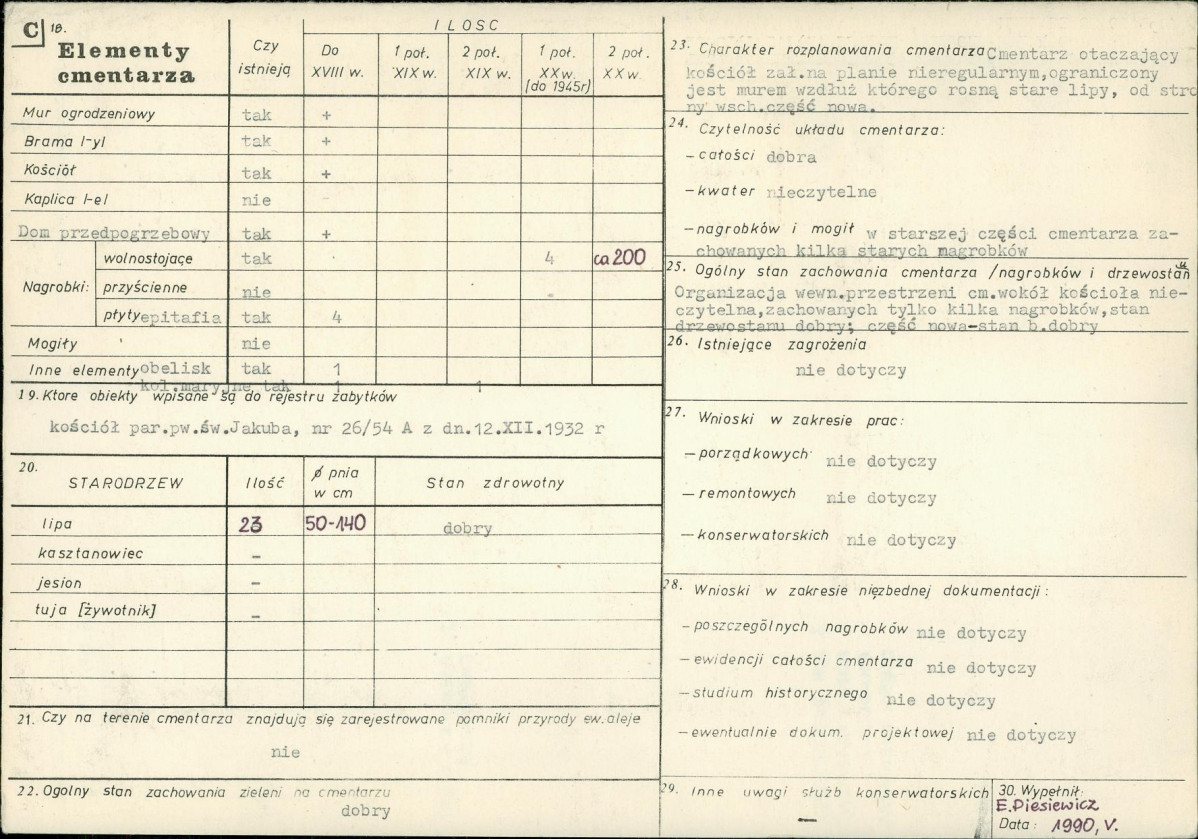 C 18.
Elementy
cmentarza
Czy
istnieją
ILOSC
Do
XVIII w.
1 poł.
XIX w.
2 poł.
XIX w.
1 poł.
XX w.
[do 1945r]
2 poł.
XX w.
Mur ogrodzeniowy tak +
Brama [-y] tak +
Kościół tak +
Kaplica [-e] nie
Dom przedpogrzebowy tak +
Nagrobki:
wolnostojące tak 4 ca 200
przyścienne nie
płyty epitafia tak 4
Mogiły nie
Inne elementy obelisk tak 1
kol.maryjne tak 1 1
19. Ktore obiekty wpisane są do rejestru zabytków
kościół par.pw.św.Jakuba, nr 26/54 A z dn.12.XII.1932 r
20.
STARODRZEW Ilość ϕ pnia
w cm Stan zdrowotny
lipa 23 50-140 dobry
kasztanowiec –
jesion –
tuja [żywotnik] –
21. Czy na terenie cmentarza znajdują się zarejestrowane pomniki przyrody ew. aleje
nie
22. Ogolny stan zachowania zieleni na cmentarzu
dobry
23. Charakter rozplanowania cmentarza Cmentarz otaczający
kościół zał.na planie nieregularnym,ograniczony
jest murem wzdłuż którego rosną stare lipy, od stro
ny wsch.część nowa.
24. Czytelność układu cmentarza:
– całości dobra
– kwater nieczytelne
– nagrobków i mogił w starszej części cmentarza za-
chowanych kilka starych nagrobków
25. Ogólny stan zachowania cmentarza /nagrobków i drzewostanu
Organizacja wewn.przestrzeni cm.wokół kościoła nie-
czytelna,zachowanych tylko kilka nagrobków,stan
drzewostanu dobry; część nowa-stan b.dobry
26. Istniejące zagrożenia
nie dotyczy
27. Wnioski w zakresie prac:
– porządkowych nie dotyczy
– remontowych nie dotyczy
– konserwatorskich nie dotyczy
28. Wnioski w zakresie nięzbednej dokumentacji:
– poszczególnych nagrobków nie dotyczy
– ewidencji całości cmentarza nie dotyczy
– studium historycznego nie dotyczy
– ewentualnie dokum. projektowej nie dotyczy
29. Inne uwagi służb konserwatorskich
–
30. Wypełnił:
E. Piesiewicz
Data: 1990, V.